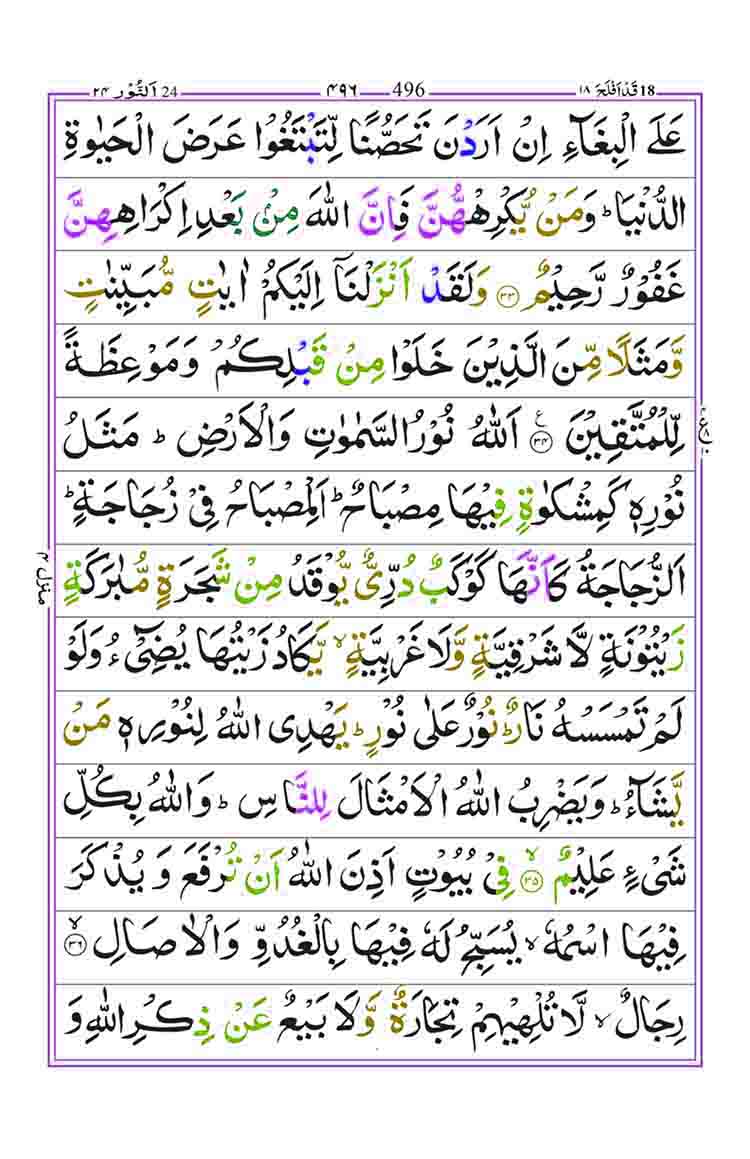 18 قَدْ اَفْلَحَ ۱۸ 496 ۴۹۶ 24 اَلنُّوْر ۲۴
عَلَى الْبِغَآءِ اِنْ اَرَدْنَ تَحَصُّنًا لِّتَبْتَغُوْا عَرَضَ الْحَيٰوةِ
الدُّنْيَا ؕ وَمَنْ يُّكْرِهْهُّنَّ فَاِنَّ اللّٰهَ مِنْۢ بَعْدِ اِكْرَاهِهِنَّ
غَفُوْرٌ رَّحِيْمٌ ۝۳۳ وَلَقَدْ اَنْزَلْنَاۤ اِلَيْكُمْ اٰيٰتٍ مُّبَيِّنٰتٍ
وَّمَثَلًا مِّنَ الَّذِيْنَ خَلَوْا مِنْ قَبْلِكُمْ وَمَوْعِظَةً
لِّلْمُتَّقِيْنَ ۝۳۴ ع اَللّٰهُ نُوْرُ السَّمٰوٰتِ وَالْاَرْضِ ؕ مَثَلُ
نُوْرِهٖ كَمِشْكٰوةٍ فِيْهَا مِصْبَاحٌ ؕ اَلْمِصْبَاحُ فِيْ زُجَاجَةٍ ؕ
اَلزُّجَاجَةُ كَاَنَّهَا كَوْكَبٌ دُرِّيٌّ يُّوْقَدُ مِنْ شَجَرَةٍ مُّبٰرَكَةٍ
زَيْتُوْنَةٍ لَّا شَرْقِيَّةٍ وَّلَا غَرْبِيَّةٍ ۙ يَّكَادُ زَيْتُهَا يُضِيْٓءُ وَلَوْ
لَمْ تَمْسَسْهُ نَارٌ ؕ نُوْرٌ عَلٰى نُوْرٍ ؕ يَهْدِى اللّٰهُ لِنُوْرِهٖ مَنْ
يَّشَآءُ ؕ وَيَضْرِبُ اللّٰهُ الْاَمْثَالَ لِلنَّاسِ ؕ وَاللّٰهُ بِكُلِّ
شَىْءٍ عَلِيْمٌ ۝۳۵ ۙ فِيْ بُيُوْتٍ اَذِنَ اللّٰهُ اَنْ تُرْفَعَ وَ يُذْكَرَ
فِيْهَا اسْمُهٗ ۙ يُسَبِّحُ لَهٗ فِيْهَا بِالْغُدُوِّ وَالْاٰصَالِ ۝۳۶ ۙ
رِجَالٌ ۙ لَّا تُلْهِيْهِمْ تِجَارَةٌ وَّلَا بَيْعٌ عَنْ ذِكْرِ اللّٰهِ وَ
منزل ۴